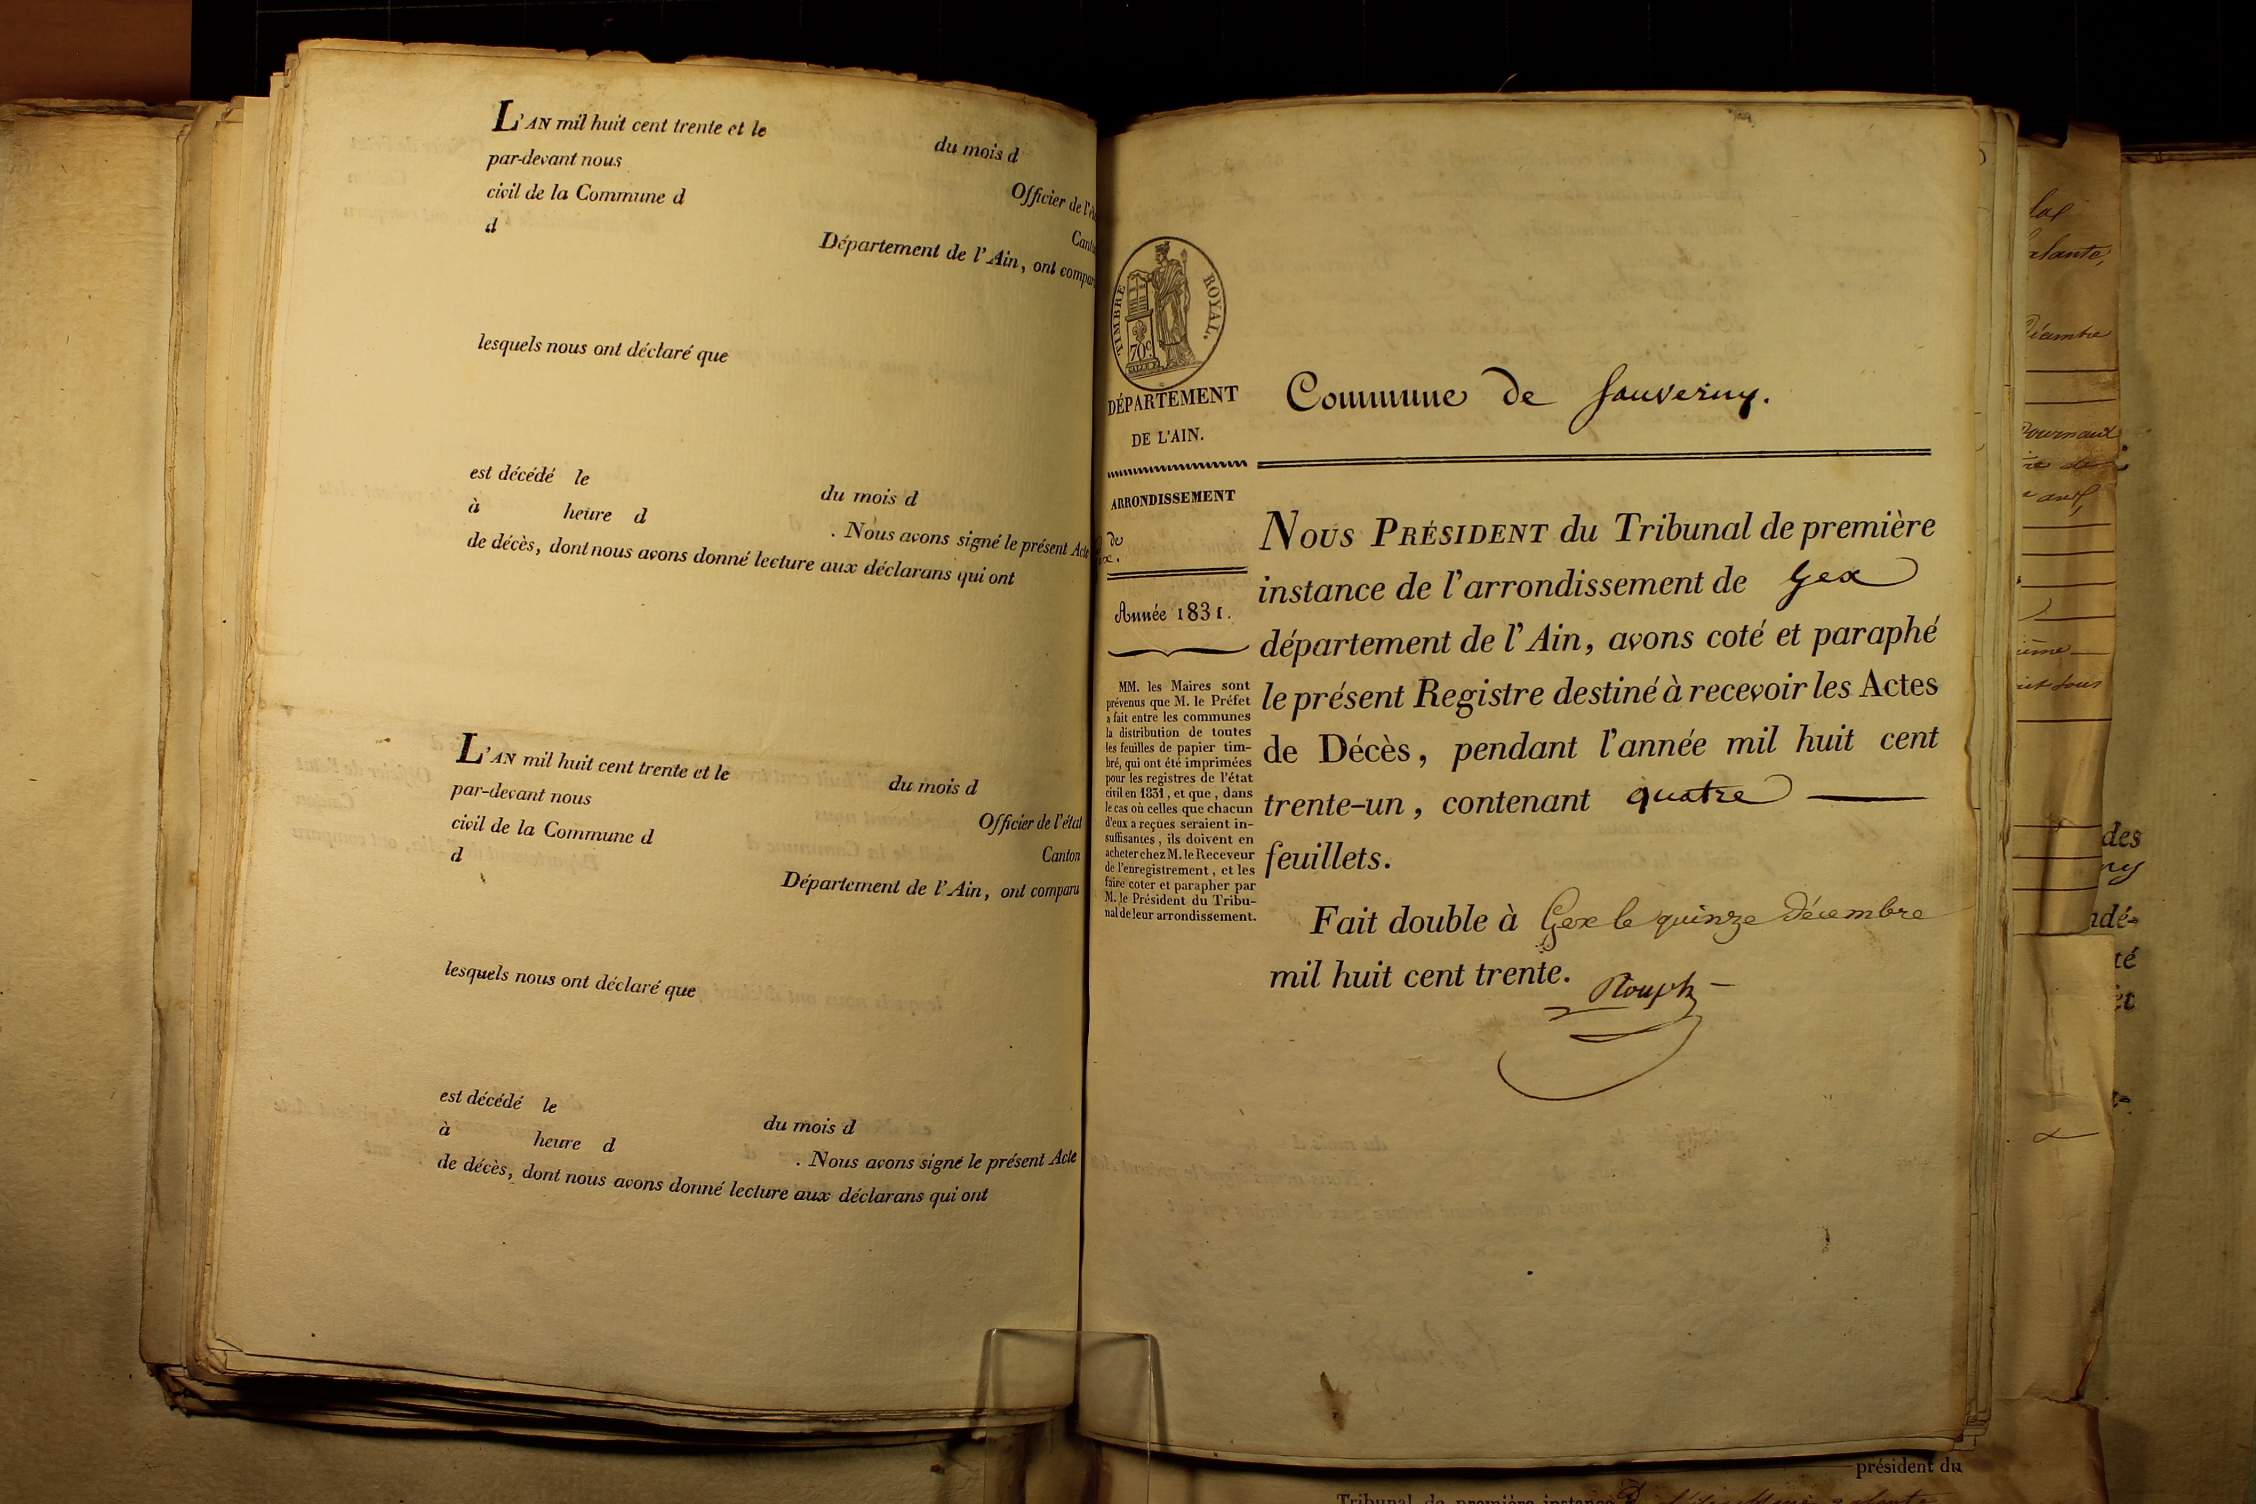 L'AN mil huit cent trente et le du mois d
par-devant nous Officier de l'éta
civil de la Commune d Cant
d Département de l'Ain, ont compar
lesquels nous ont déclaré que
est décédé le du mois d
à heure d . Nous avons signé le présent Acte
de décès, dont nous avons donné lecture aux déclarans qui ont
L'AN mil huit cent trente et le du mois d
par-devant nous Officier de l'état
civil de la Commune d Canton
d Département de l'Ain, ont comparu
lesquels nous ont déclaré que
est décédé le du mois d
à heure d . Nous avons signé le présent Acte
de décès, dont nous avons donné lecture aux déclarans qui ont
TIMBRE ROYAL.
70c
DÉPARTEMENT
DE L'AIN.
ARRONDISSEMENT
de
Année 1831.
MM. les Maires sont
prévenus que M. le Préfet
a fait entre les communes
la distribution de toutes
les feuilles de papier tim-
bré, qui ont été imprimées
pour les registres de l'état
civil en 1831, et que, dans
le cas où celles que chacun
d'eux a reçues seraient in-
suffisantes, ils doivent en
acheter chez M. le Receveur
de l'enregistrement, et les
faire coter et parapher par
M. le Président du Tribu-
nal de leur arrondissement.
Commune de Sauverny.
NOUS PRÉSIDENT du Tribunal de première
instance de l'arrondissement de Gex
département de l'Ain, avons coté et paraphé
le présent Registre destiné à recevoir les Actes
de Décès, pendant l'année mil huit cent
trente-un, contenant quatre
feuillets.
Fait double à Gex le quinze décembre
mil huit cent trente.
Rouph
des
ndé-
té
président du
Tribunal de première instance